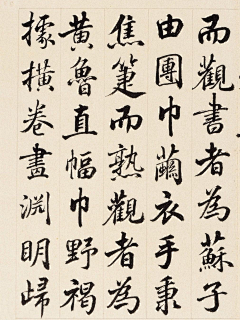 而觀書者為蘇子
由團巾繭衣手秉
焦箑而熟觀者為
黃魯直幅巾野褐
據橫卷畫淵明歸